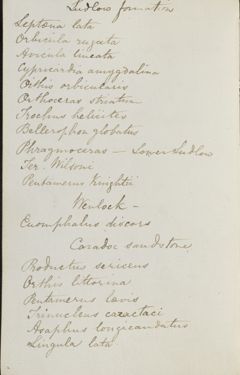 Ludlow formation
Leptœna lata
Orbicula rugata
Avicula lineata
Cypricardia amygdalina
Orthis orbicularis
Orthoceras striatum
Trochus helicites
Bellerophon globatus
Phragmoceras — Lower Ludlow
Ter. Wilsoni
Pentamerus Knightii
Wenlock —
Euomphalus discors
Caradoc sandstone
Productus sericeus
Orthis littorina
Pentamerus lævis
Trinucleus caractaci
Asaphus longicaudatus
Lingula lata.